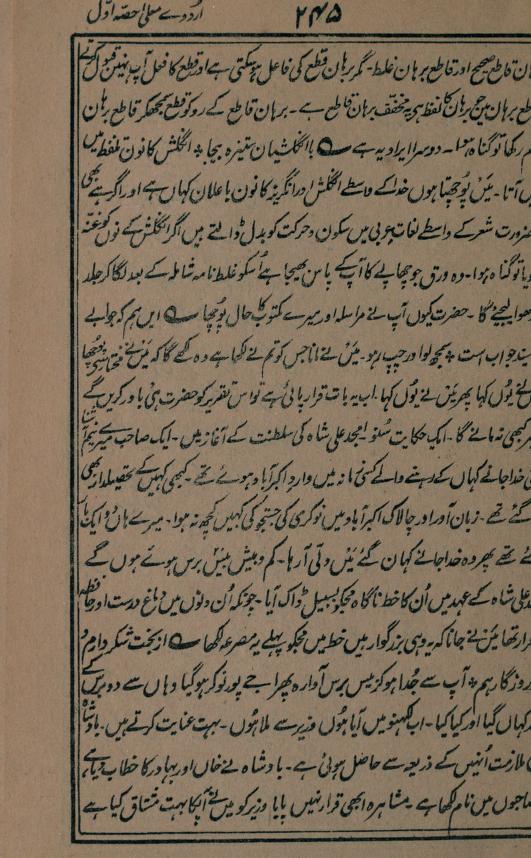 اردوئے معلیٰ حصہ اول
۲۴۵
قاطع صحیح اور قاطع برہان غلط۔ مگر برہان قطع کی فاعل ہوسکتی ہے اور قطع کا فعل آپ نہیں قبول کرتے
برہان میں جو برہان کا لفظ ہے یہ مخفف برہان قاطع ہے۔ برہان قاطع کے رد کو قطع سمجھکر قاطع برہان
رکھا تو گناہ ہوا۔ دوسرا ایراد یہ ہے با انگلشیان ستیزہ بیجا، انگلش کا نون تلفظ میں
آتا۔ میں پوچھتا ہوں خدا کے واسطے انگلش اور انگریز کا نون باعلان کہاں ہے اور اگر ہے بھی
ضرورت شعر کے واسطے لغات عربی میں سکون و حرکت کو بدل ڈالتے ہیں اگر انگلش کے نون کو غنہ
تو گناہ ہوا۔ وہ ورق جو چھاپے کا آپ کے پاس بھیجا ہے اسکو غلط نامہ شاملہ کے بعد لگا کر جلد
لیجئے گا۔ حضرت کیوں آپ نے مراسلہ اور میرے مکتوب کا حال پوچھا ایں ہم کہ جوابے
جواب است، سمجھ لو اور چپ رہو۔ میں نے مانا جس کو تم نے لکھا ہے وہ کہے گا کہ میں نے
یوں کہا پھر میں نے یوں کہا۔ اب یہ بات قرار پائی ہے تو اس تقریر کو حضرت ہی باور کریں گے
کبھی نہ مانے گا۔ ایک حکایت سنو۔ امجد علی شاہ کی سلطنت کے آغاز میں۔ ایک صاحب میرے نیم آشنا
خدا جانے کہاں کے رہنے والے کسی زمانہ میں وارد اکبرآباد ہوئے تھے۔ کبھی کہیں کے تحصیلدار بھی
گئے تھے۔ زبان آور اور چالاک اکبرآباد میں نوکری کی جستجو کی کہیں کچھ نہ ہوا۔ میرے ہاں دو ایک بار
تھے پھر وہ خدا جانے کہاں گئے میں دلی آ رہا۔ کم و بیش بیس برس ہوئے ہوں گے
علی شاہ کے عہد میں اُن کا خط ناگاہ مجکو بسبیل ڈاک آیا۔ چونکہ اُن دنوں میں دماغ درست اور حافظہ
تھا میں نے جانا کہ یہ وہی بزرگوار ہیں خط میں مجکو پہلے یہ مصرعہ لکھا از بخت شکر دارم و
روزگار ہم، آپ سے جدا ہو کر بیس برس آوارہ پھرا جے پور نوکر ہو گیا وہاں سے دو برس کے
کہاں گیا اور کیا کیا۔ اب لکھنو میں آیا ہوں وزیر سے ملا ہوں۔ بہت عنایت کرتے ہیں۔ بادشاہ
ملازمت اُنہیں کے ذریعہ سے حاصل ہوئی ہے۔ بادشاہ نے خان اور بہادر کا خطاب دیا ہے،
میں نام لکھا ہے۔ مشاہرہ ابھی قرار نہیں پایا وزیر کو میں نے آپ کا بہت مشتاق کیا ہے